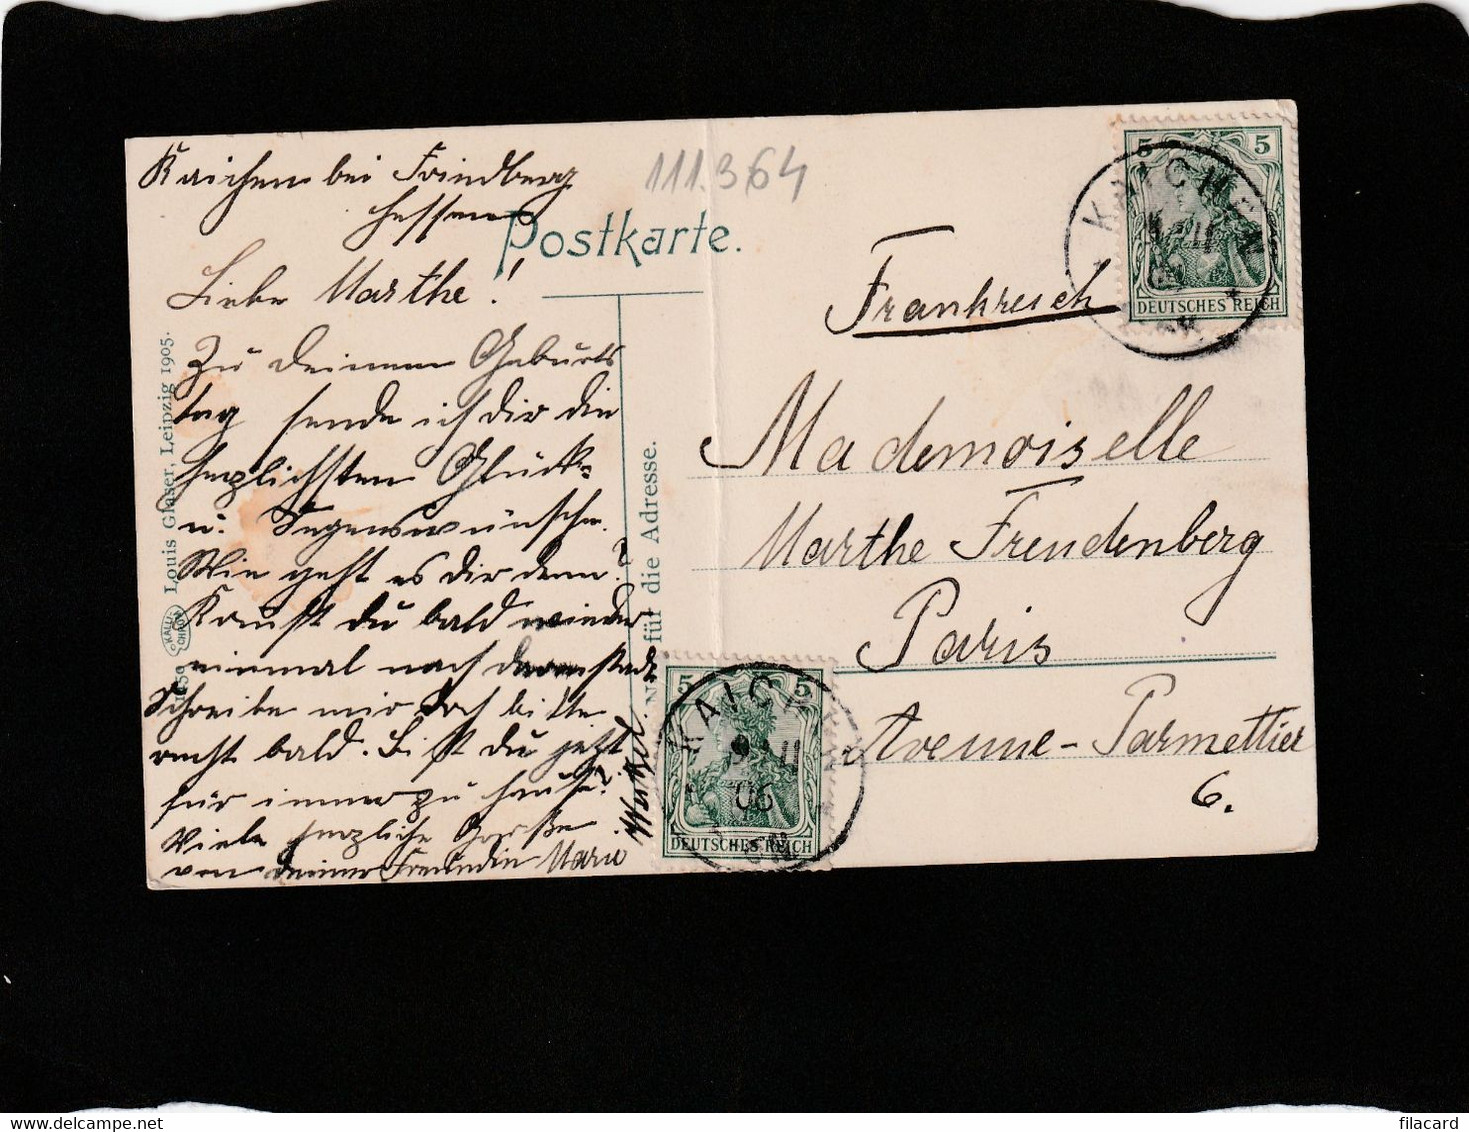 Kaichen bei Friedberg
Hessen
111.364
Postkarte.
Liebe Marthe!
Zu deinem Geburts
tag sende ich dir die
herzlichsten Glück-
u. Segenswünsche.
Wie geht es dir denn?
Kommst du bald wieder
einmal nach Darmstadt?
Schreibe mir doch bitte
recht bald. Bist du jetzt
für immer zu Hause?
Viele herzliche Grüße
von deiner Freundin Marie
Louis Glaser, Leipzig 1905.
für die Adresse.
Frankreich
Mademoiselle
Marthe Freudenberg
Paris
Avenue-Parmettier
6.
5 5
KAICHEN
DEUTSCHES REICH
5 5
KAICHEN
9 11
06
DEUTSCHES REICH
delcampe.net
filacard